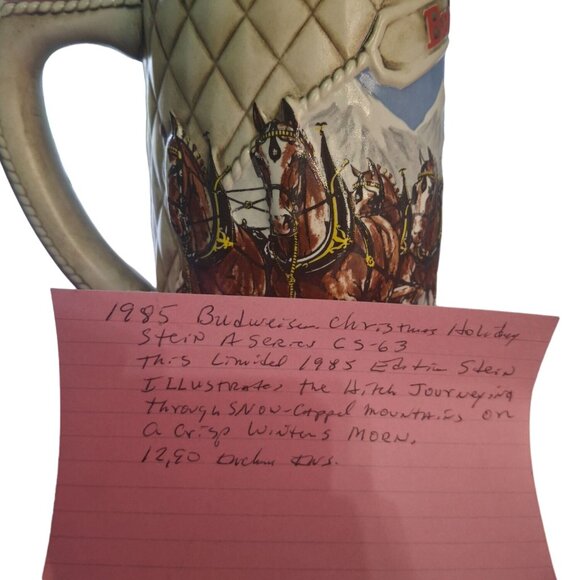 1985 Budweiser Christmas Holiday
Stein A Series CS-63
This Limited 1985 Edition Stein
ILLUSTRATES the Hitch JOURNEYING
through SNOW-Capped mountains on
a Crisp Winters MORN.
12,90